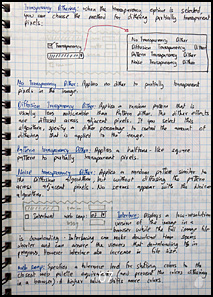 Transparency Dithering: when the transparency option is selected,
you can choose the method for dithering partially transparent
pixels.
Transparency
No Transparency Dither
Diffusion Transparency Dither
Pattern Transparency Dither
Noise Transparency Dither
No Transparency Dither: Applies no dither to partially transparent
pixels in the image.
Diffusion Transparency Dither: Applies a random pattern that is
usually less noticeable than Pattern dither. The dither effects
are diffused across adjacent pixels. If you select this
algorithm, specify a dither percentage to control the amount of
dithering that is applied to the image.
Pattern Transparency Dither: Applies a halftone-like square
pattern to partially transparent pixels.
Noise Transparency Dither: Applies a random pattern similar to
the Diffusion algorithm, but without diffusing the pattern
across adjacent pixels. No seams appear with the Noise
algorithm.
Interlaced Web Snap:
Interlace: Displays a low-resolution
version of the image in a
browser while the full image file
is downloading. Interlacing can make downloading time seem
shorter and can assure the viewers that downloading is in
progress, however interlace also increases in file size.
Web Snap: Specifies a tolerance level for shifting colors to the
closest web palette equivalents (and prevent the colors dithering
in a browser). A higher value shifts more colors.